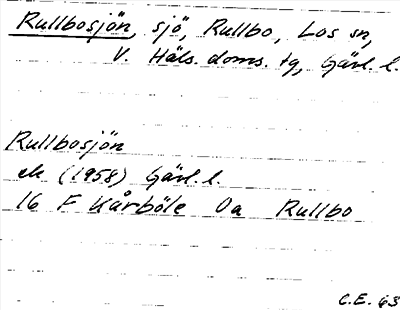 Rullbosjön, sjö, Rullbo, Los sn,
V. Häls. doms. tg, Gävl. l.
Rullbosjön
ek (1958) Gävl. l.
16 F Kårböle 0a Rullbo
C.E. 63